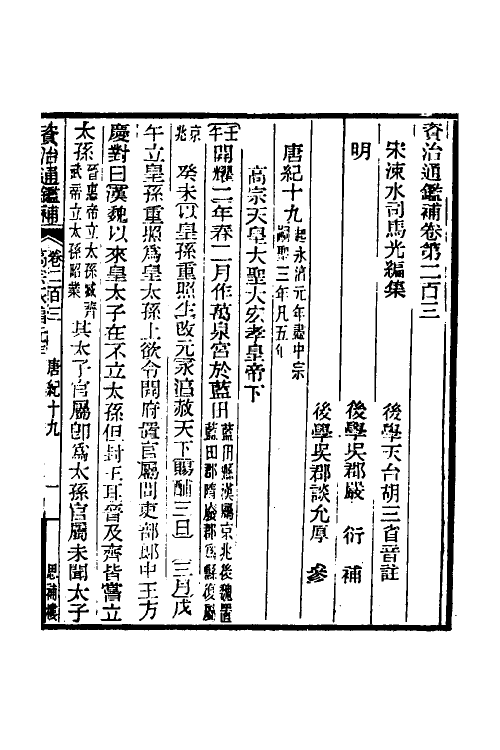 資治通鑑補卷第二百三
宋涑水司馬光編集
後學天台胡三省音註
明
後學吳郡嚴 衍 補
後學吳郡談允厚 參
唐紀十九起永濟元年盡中宗嗣聖三年凡五年
高宗天皇大聖大宏孝皇帝下
壬午開耀二年春二月作萬泉宮於藍田藍田縣漢屬京兆後魏置藍田郡隋廢郡爲縣復屬
京兆 癸未以皇孫重照生改元永淳赦天下賜酺三日 三月戊
午立皇孫重照爲皇太孫上欲令開府置官屬問吏部郎中王方
慶對曰漢魏以來皇太子在不立太孫但封王耳晉及齊皆嘗立
太孫晉惠帝立太孫臧齊武帝立太孫昭業其太子官屬卽爲太孫官屬未聞太子
資治通鑑補 卷二百三 唐紀十九 一 思補樓